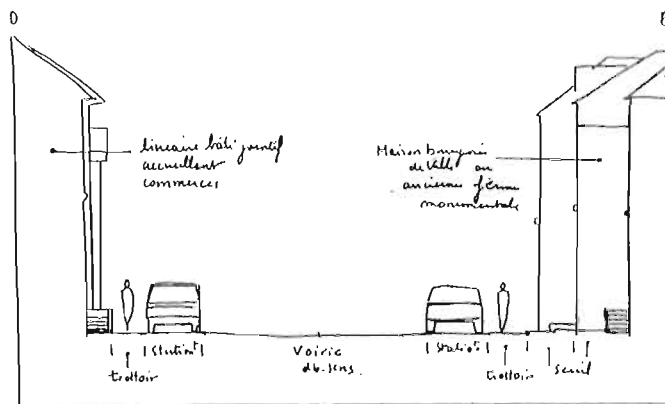 O
E
linéaire bâti
accueillant
commerces
Maison bourgeoise
de ville ou
ancienne ferme
monumentale
trottoir
stationt
Voirie
db. sens
stationt
trottoir
seuil